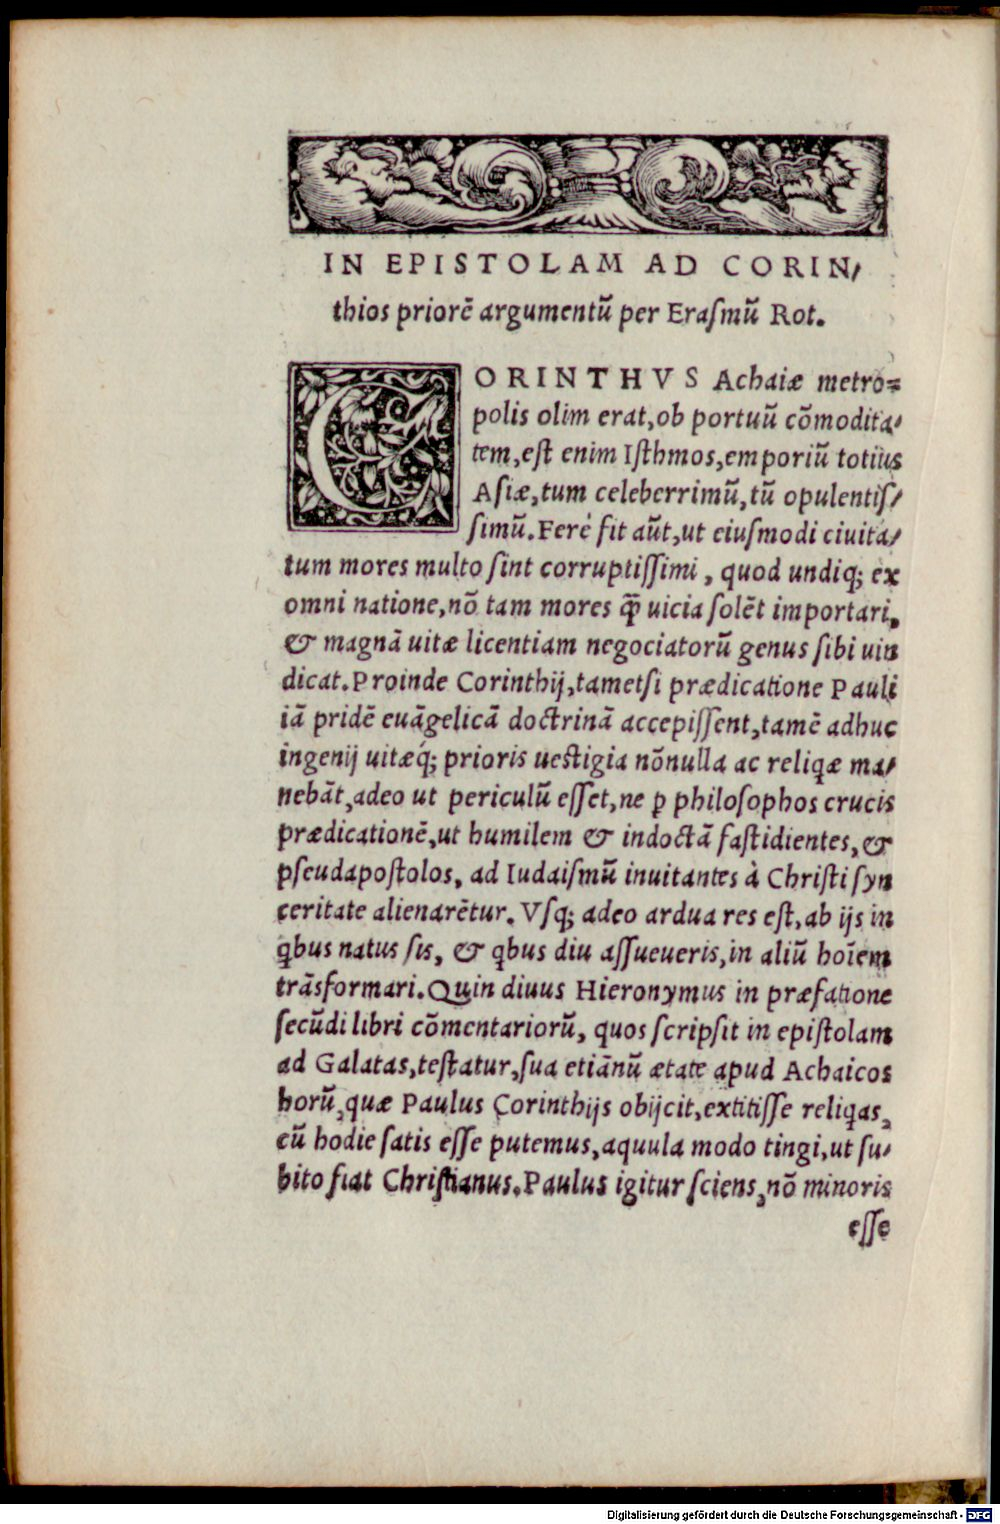 IN EPISTOLAM AD CORIN/
thios priorē argumentū per Eraſmū Rot.
CORINTHVS Achaiæ metro=
polis olim erat, ob portuū cōmodita/
tem, eſt enim Iſthmos, emporiū totius
Aſiæ, tum celeberrimū, tū opulentiſ/
ſimū. Ferè fit aūt, ut eiuſmodi ciuita/
tum mores multo ſint corruptiſſimi, quod undiq; ex
omni natione, nō tam mores q̄̃ uicia ſolēt importari,
& magnā uitæ licentiam negociatorū genus ſibi uin
dicat. Proinde Corinthij, tametſi prædicatione Pauli
iā pridē euāgelicā doctrinā accepiſſent, tamē adhuc
ingenij uitæq́; prioris ueſtigia nōnulla ac reliqæ ma/
nebāt, adeo ut periculū eſſet, ne ꝑ philoſophos crucis
prædicationē, ut humilem & indoctā faſtidientes, &
pſeudapoſtolos, ad Iudaiſmū inuitantes à Chriſti ſyn
ceritate alienarētur. Vſq; adeo ardua res eſt, ab ijs in
qbus natus ſis, & qbus diu aſſueueris, in aliū hoīem
trāsformari. Quin diuus Hieronymus in præfatione
ſecūdi libri cōmentariorū, quos ſcripſit in epiſtolam
ad Galatas, teſtatur, ſua etiānū ætate apud Achaicos
horū, quæ Paulus Corinthijs obijcit, extitiſſe reliqas,
cū hodie ſatis eſſe putemus, aquula modo tingi, ut ſu/
bito fiat Chriſtianus. Paulus igitur ſciens, nō minoris
eſſe
Digitalisierung gefördert durch die Deutsche Forschungsgemeinschaft - DFG